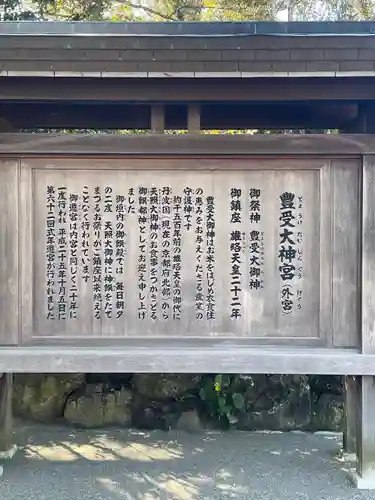 とようけだいじんぐう
豊受大神宮(外宮)
げくう
御祭神 豊受大御神
御鎮座 雄略天皇二十二年
豊受大御神はお米をはじめ衣食住
の恵みをお与えくださる産業の
守護神です
約千五百年前の雄略天皇の御代に
丹波国(現在の京都府北部)から
天照大御神のお食事をつかさどる
御饌都神としてお迎え申し上げ
ました
御垣内の御饌殿では 毎日朝夕
の二度 天照大御神に神饌をたて
まつるお祭りがご鎮座以来絶える
ことなく行われています
御遷宮は内宮と同じく二十年に
一度行われ 平成二十五年十月五日に
第六十二回式年遷宮が行われました